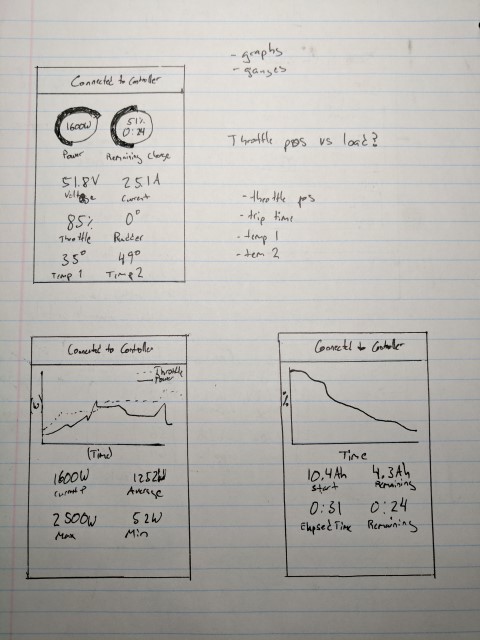 - graphs
- gauges
Connected to Controller
1600W
51%
0:24
Power Remaining Charge
51.8V 25.1A
Voltage Current
85% 0°
Throttle Rudder
35° 49°
Temp 1 Temp 2
Throttle pos vs load?
- throttle pos
- trip time
- temp 1
- tem 2
Connected to Controller
Throttle
Power
(W)
(Time)
1600W 1252W
Current P Average
2500W 52W
Max Min
Connected to Controller
%
Time
10.4Ah 4.3Ah
Start Remaining
0:31 0:24
Elapsed Time Remaining